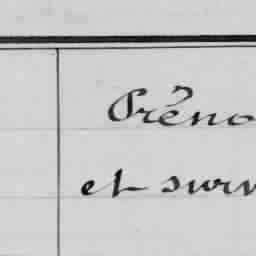 Préno
et surn